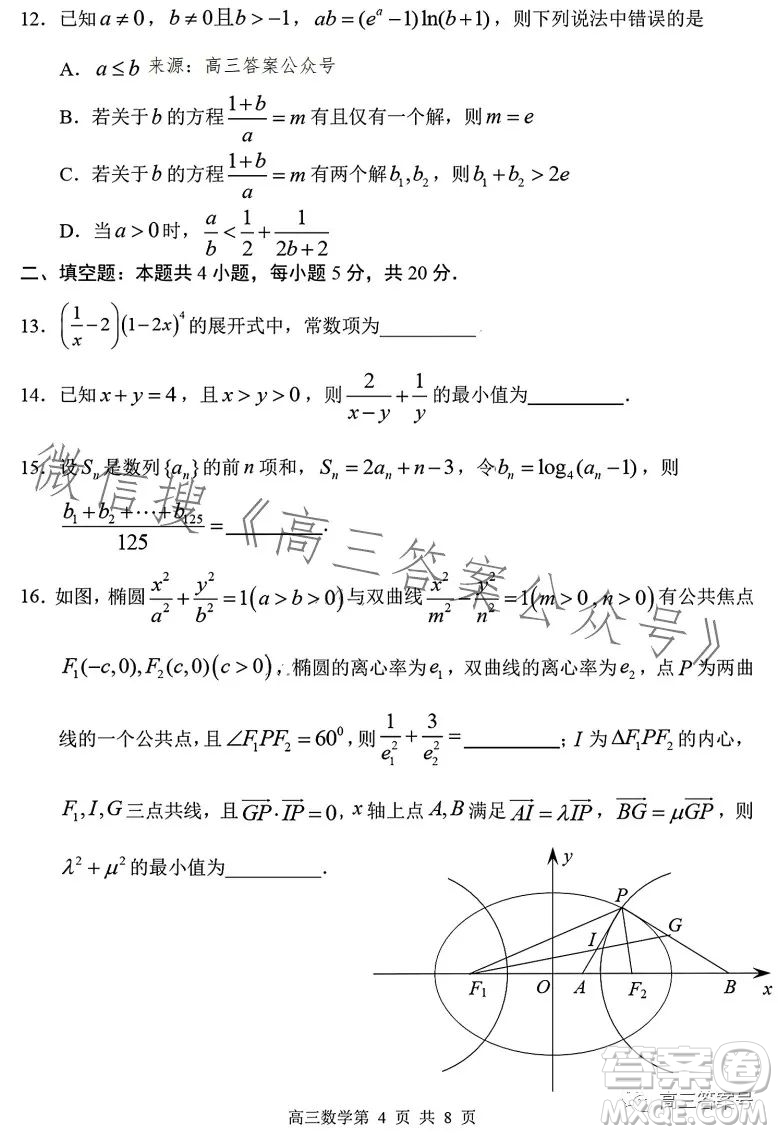 12．已知 a≠0，b≠0且b>-1，ab=(e^a-1)ln(b+1)，则下列说法中错误的是
A．a≤b 来源：高三答案公众号
B．若关于 b 的方程 (1+b)/a = m 有且仅有一个解，则 m=e
C．若关于 b 的方程 (1+b)/a = m 有两个解 b₁,b₂，则 b₁+b₂>2e
D．当 a>0 时，a/b < 1/2 + 1/(2b+2)
二、填空题：本题共 4 小题，每小题 5 分，共 20 分．
13．(1/x-2)(1-2x)^4 的展开式中，常数项为__________
14．已知 x+y=4，且 x>y>0，则 2/(x-y) + 1/y 的最小值为__________．
15．设 Sₙ 是数列{aₙ}的前 n 项和，Sₙ=2aₙ+n-3，令 bₙ=log₄(aₙ-1)，则
(b₁+b₂+⋯+b₁₂₅)/125 =__________．
16．如图，椭圆 x²/a² + y²/b² =1(a>b>0)与双曲线 x²/m² - y²/n² =1(m>0,n>0)有公共焦点
F₁(-c,0),F₂(c,0)(c>0)，椭圆的离心率为 e₁，双曲线的离心率为 e₂，点 P 为两曲
线的一个公共点，且 ∠F₁PF₂=60⁰，则 1/e₁² + 3/e₂² =__________；I 为 ΔF₁PF₂ 的内心，
F₁,I,G 三点共线，且 GP⃗·IP⃗=0，x 轴上点 A,B 满足 AI⃗=λIP⃗，BG⃗=μGP⃗，则
λ²+μ² 的最小值为__________．
y
P
G
I
F₁ O A F₂ B x
高三数学第 4 页 共 8 页
微信搜《高三答案公众号》
高三答案号
答案圈
MXQE.COM